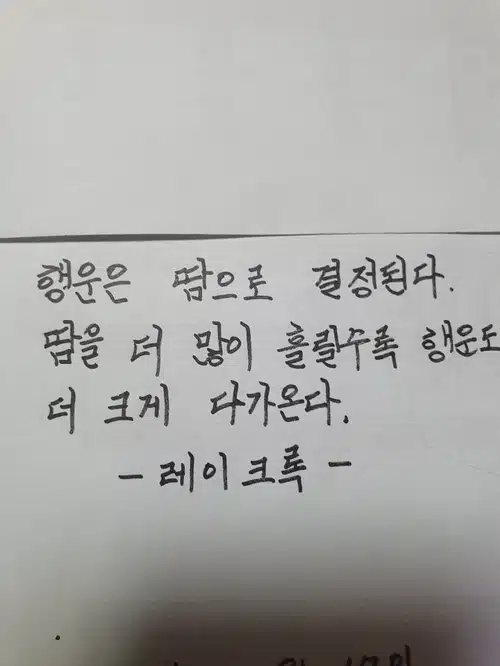 행운은 땀으로 결정된다.
땀을 더 많이 흘릴수록 행운도
더 크게 다가온다.
- 레이크록 -